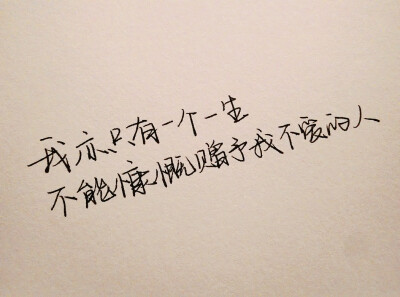 我亦只有一个一生
不能慷慨赠予我不爱的人